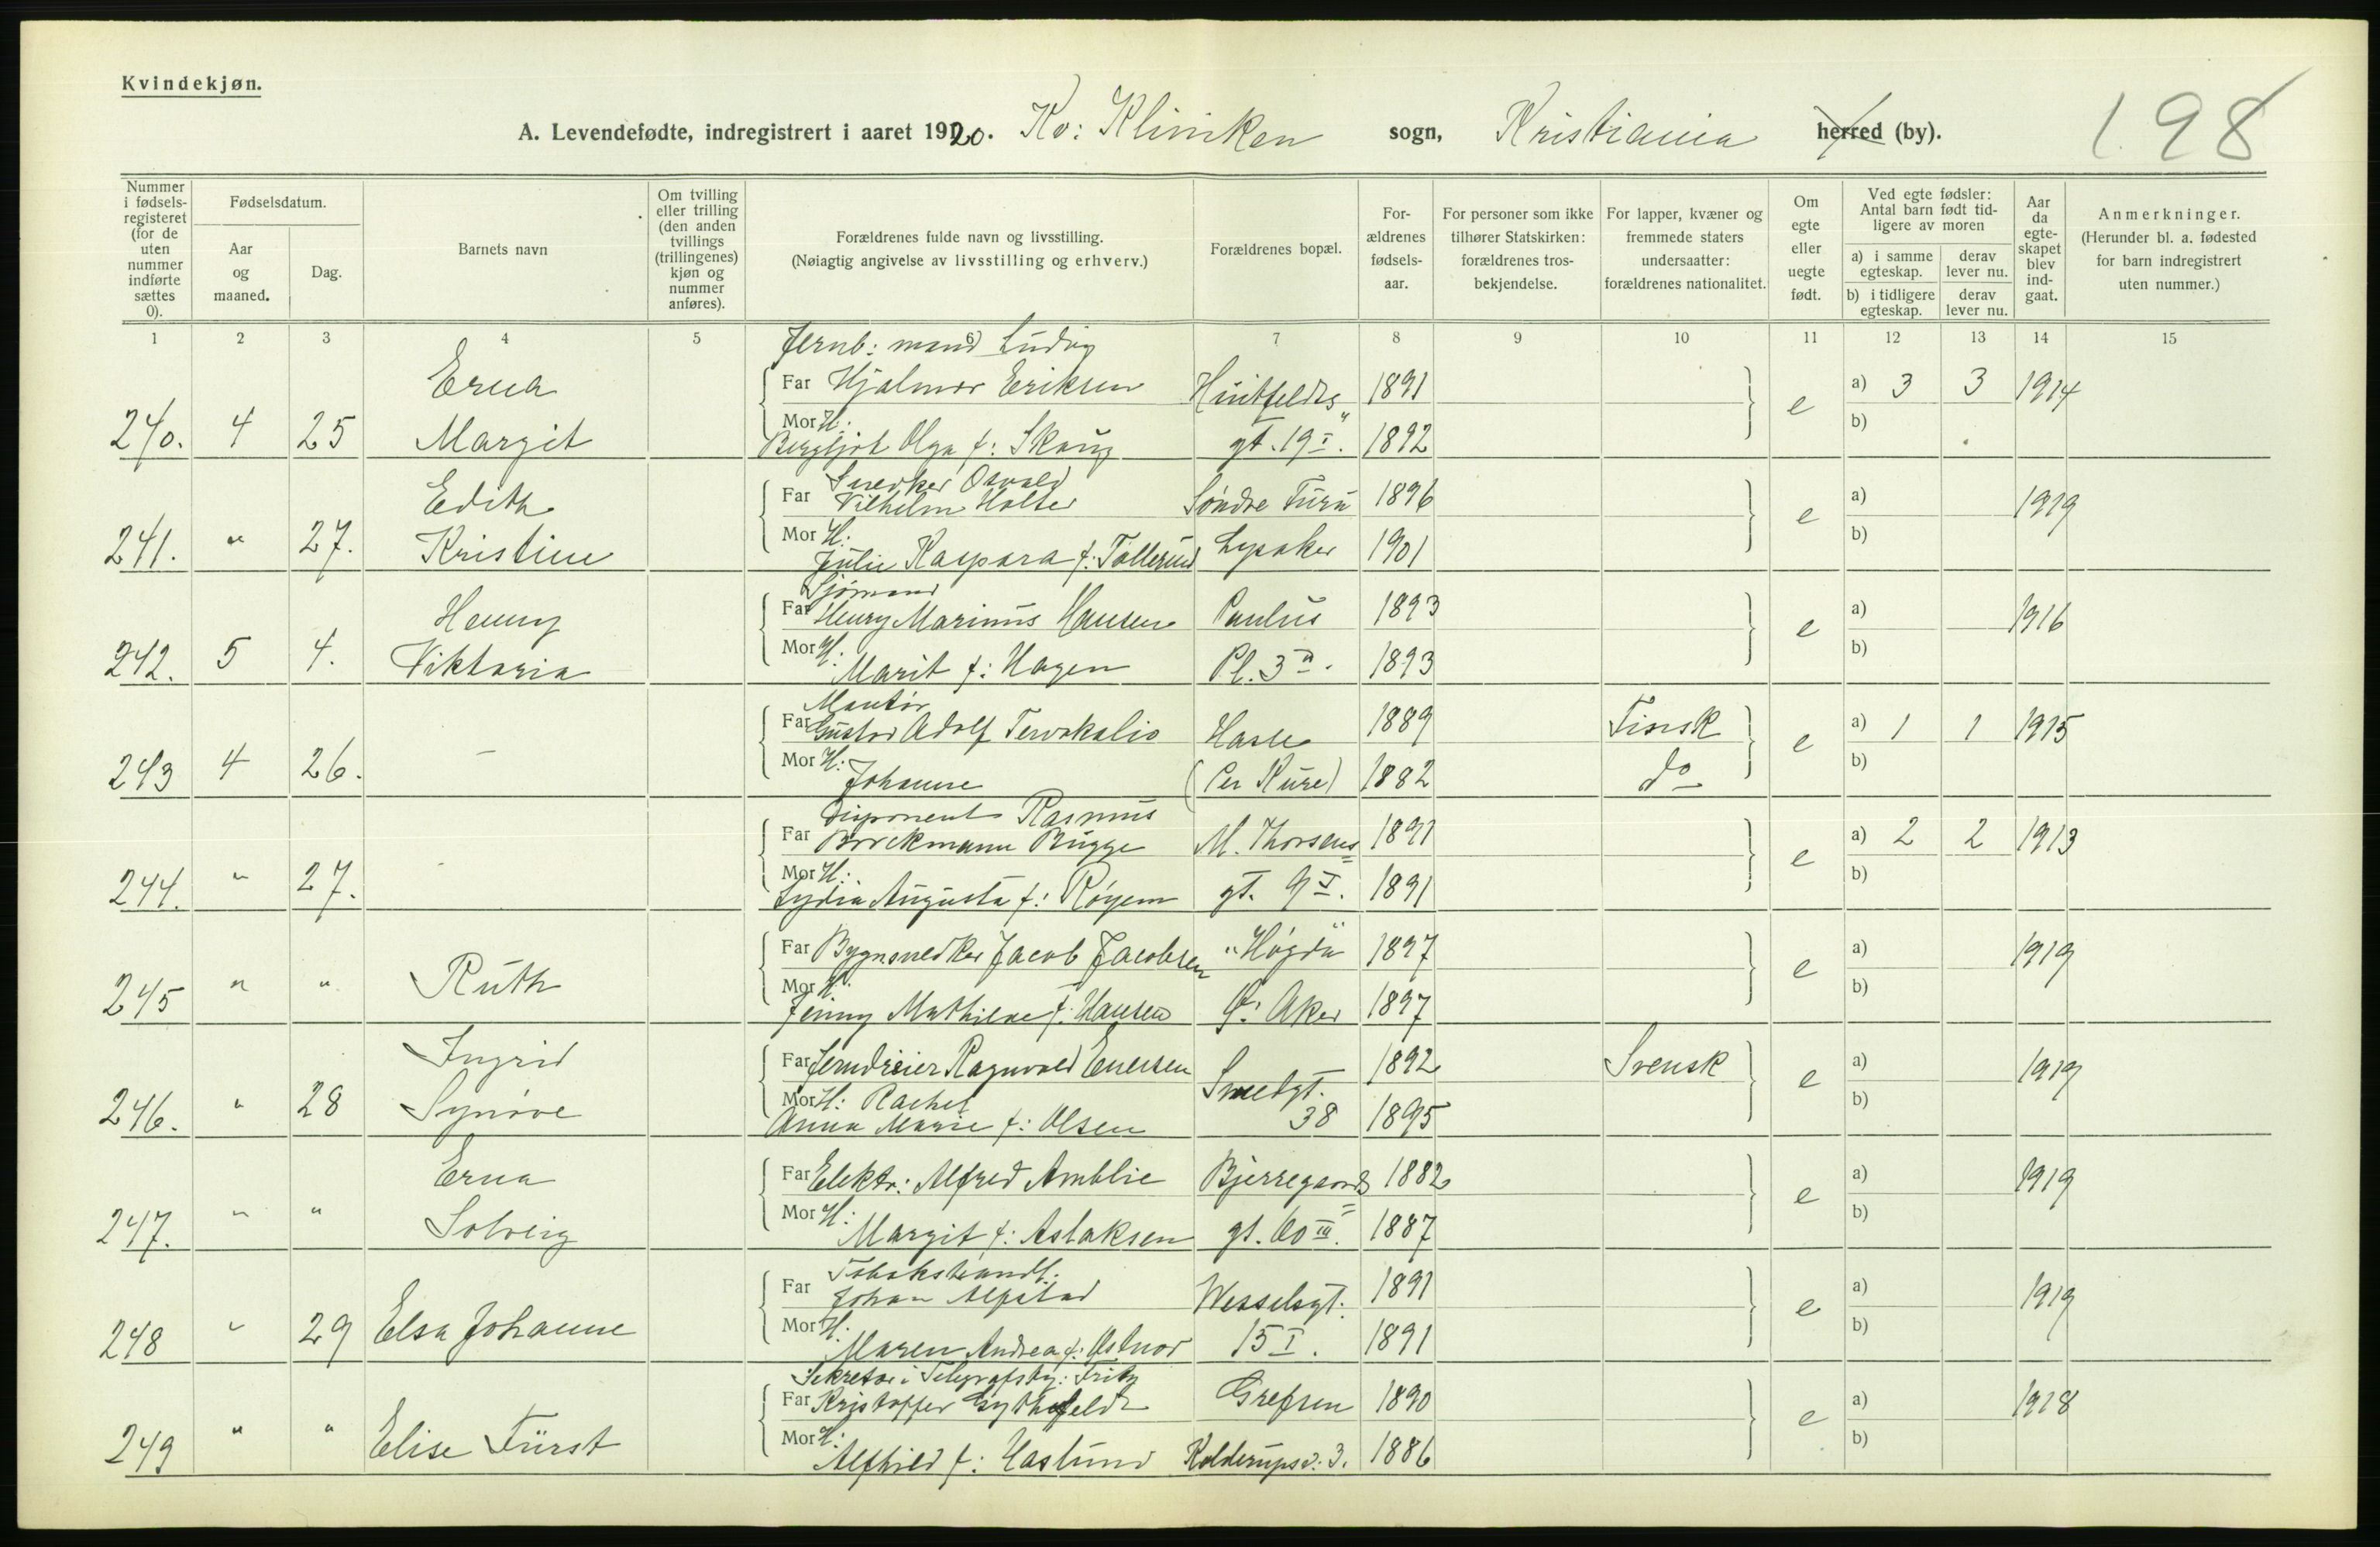 Kvindekjøn.
A. Levendefødte, indregistrert i aaret 1920. Kv: Kliniken sogn, Kristiania herred (by).
198
Nummer i fødselsregisteret (for de uten nummer indførte sættes 0).
Fødselsdatum.
Aar og maaned.
Dag.
Barnets navn
Om tvilling eller trilling (den anden tvillings (trillingenes) kjøn og nummer anføres).
Forældrenes fulde navn og livsstilling.
(Nøiagtig angivelse av livsstilling og erhverv.)
Forældrenes bopæl.
Forældrenes fødselsaar.
For personer som ikke tilhører Statskirken: forældrenes trosbekjendelse.
For lapper, kvæner og fremmede staters undersaatter: forældrenes nationalitet.
Om egte eller uegte født.
Ved egte fødsler: Antal barn født tidligere av moren
a) i samme egteskap.
derav lever nu.
b) i tidligere egteskap.
derav lever nu.
Aar da egteskapet blev indgaat.
Anmerkninger.
(Herunder bl. a. fødested for barn indregistrert uten nummer.)
1 2 3 4 5 6 7 8 9 10 11 12 13 14 15
Jernb: mand Ludvig
Erna Far Hjalmar Eriksen Huitfeldts 1891 e a) 3 3 1914
240. 4 25 Margit Mor H: Bergljot Olga f: Skaug gt. 19 I. 1892 b)
Snedker Osvald
Edith Far Vilhelm Holter Søndre Furu 1896 e a) 1919
241. " 27. Kristine Mor H: Julie Kaspara f: Tollerud Lysaker 1901 b)
Sjømand
Henny Far Henry Marinus Hansen Paulus 1893 e a) 1916
242. 5 4. Viktoria Mor H: Marit f: Hagen Pl. 3 1893 b)
Montør
Far Gustav Adolf Hasle 1889 Finsk e a) 1 1 1915
243 4 26. – Mor H: Johanne (Per Kure) 1882 do b)
Disponent Rasmus
Far Brockmann Bugge M. Thorsens 1891 e a) 2 2 1913
244. " 27. - Mor H: Lydia Augusta f: Røyem gt. 9 I. 1891 b)
Far Bygnsnedker Jacob Jacobsen "Høgda" 1897 e a) 1919
245 " " Ruth Mor H: Jenny Mathilde f: Hansen Ø. Aker 1897 b)
Ingrid Far Jerndreier Ragnvald Enersen Smedgt. 1892 Svensk e a) 1919
246. " 28 Synøve Mor H: Rachel Anna Marie f: Olsen 38 1895 b)
Erna Far Elektr: Alfred Amblie Bjerregaards 1882 e a) 1919
247. " " Solveig Mor H: Margit f: Aslaksen gt. 60 III. 1887 b)
Tobakshandl.
Far Johan Alfstad Wesselsgt. 1891 e a) 1919
248 " 29 Elsa Johanne Mor H: Maren Andrea f: Østnor 15 I. 1891 b)
Sekretær i Telegrafsty: Fritz
Far Kristoffer Gythfeldt Grefsen 1890 e a) 1918
249 " " Elise Fürst Mor H: Alfhild f: Haslund Kolderups v. 3. 1886 b)